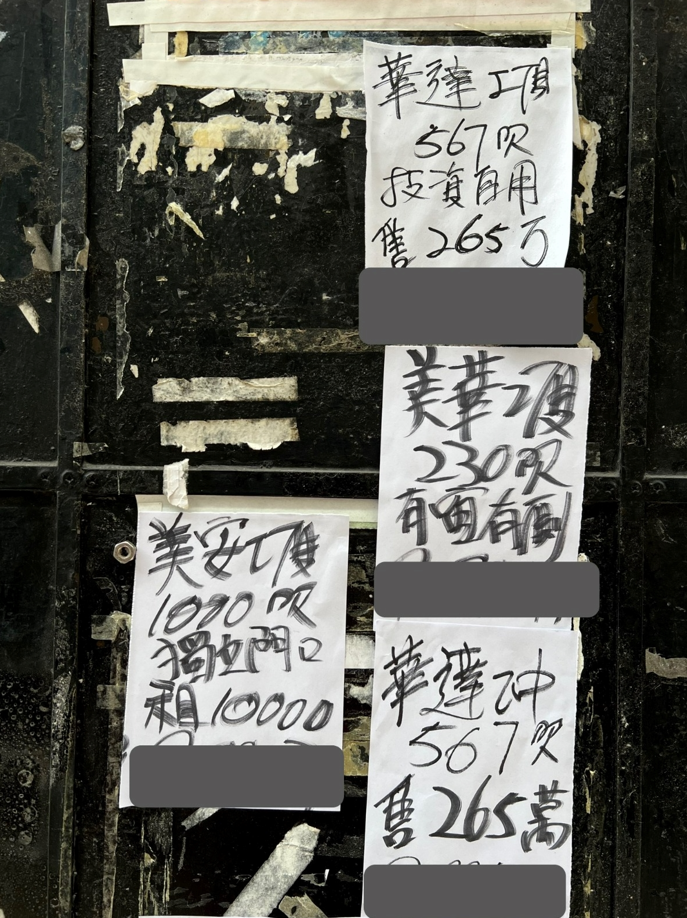 華達工厦
567呎
投資自用
售265万
美華工厦
230呎
有窗有厠
美安工厦
1000呎
獨立門口
租10000
華達工中
567呎
售265萬